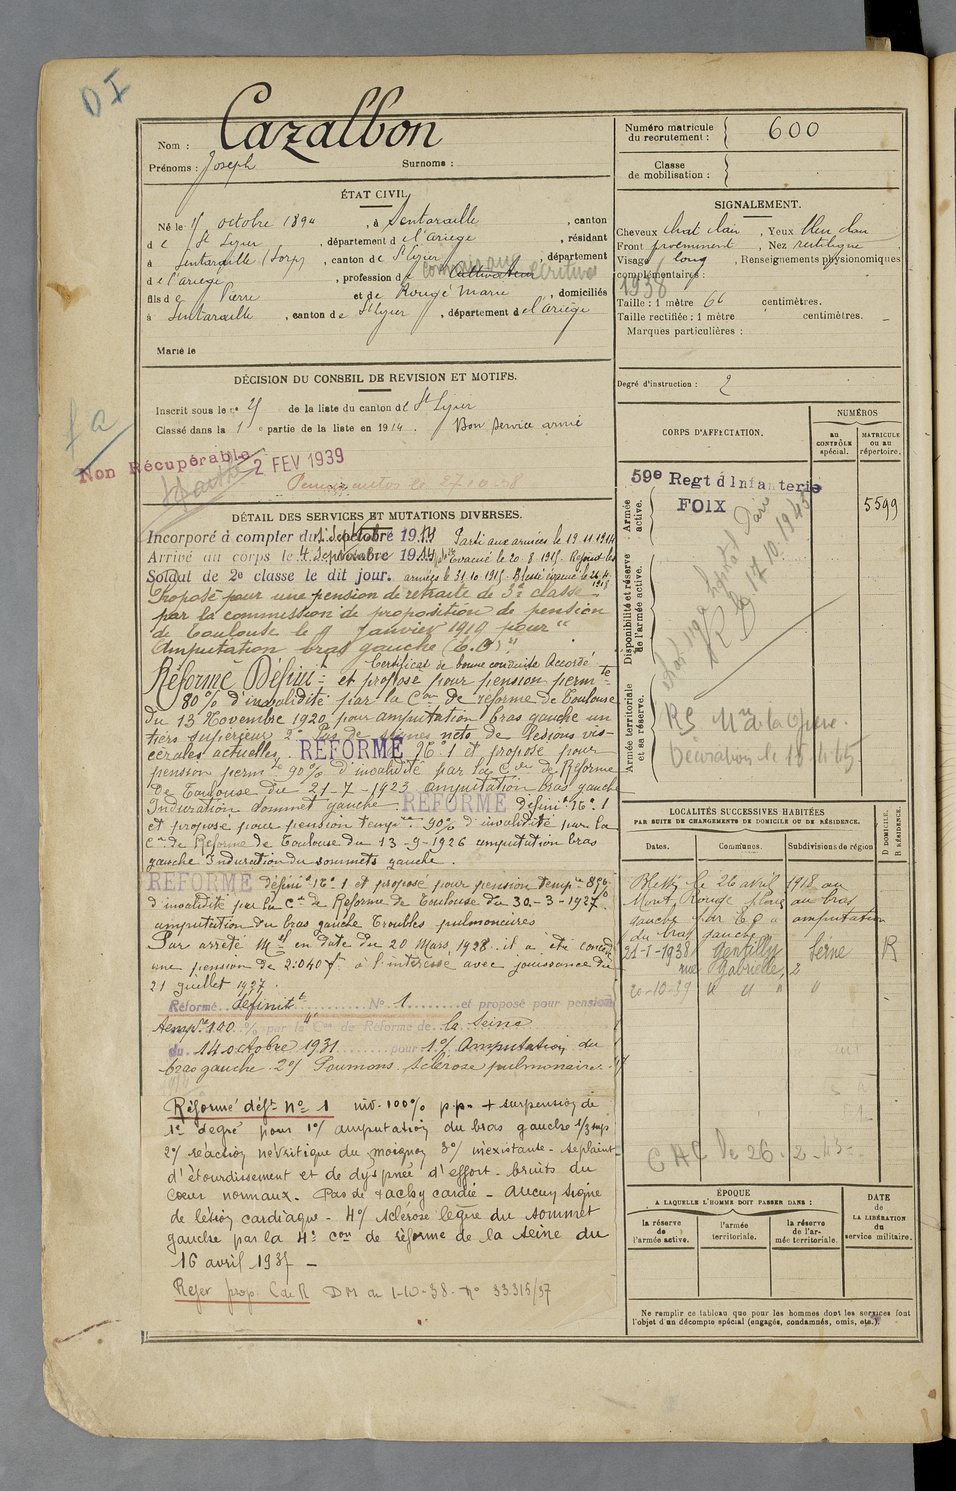 DI
Nom : Cazalbon
Prénoms : Joseph Surnoms :
Numéro matricule du recrutement : 600
Classe de mobilisation :
ÉTAT CIVIL
Né le octobre 1894, à Sentaraille, canton
de St Lizier, département de l'Ariège, résidant
à Sentaraille (Lorp), canton de St Lizier, département
de l'Ariège, profession de Cultivateur
fils de Pierre et de Rougé Marie, domiciliés
à Sentaraille, canton de St Lizier, département de l'Ariège
Marié le
SIGNALEMENT.
Cheveux chat clair, Yeux bleu clair
Front proéminent, Nez rectiligne,
Visage long, Renseignements physionomiques
complémentaires :
1938
Taille : 1 mètre 66 centimètres.
Taille rectifiée : 1 mètre centimètres.
Marques particulières :
Degré d'instruction : 2
DÉCISION DU CONSEIL DE REVISION ET MOTIFS.
Inscrit sous le n° de la liste du canton de St Lizier
Classé dans la 1e partie de la liste en 1914. Bon service armé
Non Récupérable
2 FEV 1939
27 10 38
CORPS D'AFFECTATION.
NUMÉROS
AU CONTRÔLE spécial.
MATRICULE ou au répertoire.
Armée active.
59e Regt d'Infanterie
FOIX
5599
Disponibilité et réserve de l'armée active.
17.10.1945
Armée territoriale et sa réserve.
Décoration le
DÉTAIL DES SERVICES ET MUTATIONS DIVERSES.
Incorporé à compter du 1 Septembre 1914 Parti aux armées le 19.11.1914
Arrivé au corps le 4 Septembre 1914 Evacué le 20.8.1915. Rejoint les
Soldat de 2e classe le dit jour. armées le 31.10.1915. Blessé évacué le 26.4.1918
Proposé pour une pension de retraite de 3e classe
par la commission de proposition de pension
de Toulouse le 9 Janvier 1919 pour "
Amputation bras gauche (E.O)"
Certificat de bonne conduite Accordé
Réformé Défini.t et proposé pour pension permte
80% d'invalidité par la Con de réforme de Toulouse
du 13 Novembre 1920 pour amputation bras gauche un
tiers supérieur 2° Pas de signes nets de lésions vis-
cérales actuelles. REFORMÉ N° 1 et proposé pour
pension perm.te 90% d'invalidité par la Con de Réforme
de Toulouse du 21-7-1923 amputation bras gauche
Induration sommet gauche REFORMÉ défini.t N° 1
et proposé pour pension temp.re 90% d'invalidité par la
Con de Réforme de Toulouse du 13-9-1926 amputation bras
gauche Induration du sommets gauche.
REFORMÉ défini.t N° 1 et proposé pour pension temp.re 85%
d'invalidité par la Con de Réforme de Toulouse du 30-3-1927.
amputation du bras gauche Troubles pulmonaires
Par arrêté Mel en date du 20 Mars 1928 il a été concédé
une pension de 2.040 f. à l'intéressé avec jouissance du
21 juillet 1927.
Réformé définitt N° 1 et proposé pour pension
temp.re 100 % par la 4e Con de Réforme de la Seine
du 14 octobre 1931 pour 1°/ Amputation du
bras gauche 2°/ Poumons. Sclérose pulmonaire.
Réformé déft n° 1 inv. 100% p.p. + suspension de
1er degré pour 1°/ amputation du bras gauche 1/3 sup
2°/ réaction névritique du moignon 3°/ inexistante. se plaint
d'étourdissement et de dyspnée d'effort. bruits du
Cœur normaux. Pas de tachycardie - Aucun signe
de lésion cardiaque - 4°/ sclérose légère du sommet
gauche par la 4e con de réforme de la Seine du
16 avril 1935 -
Refer prop. C de R DM du 1-10-38. n° 33315/37
LOCALITÉS SUCCESSIVES HABITÉES
PAR SUITE DE CHANGEMENTS DE DOMICILE OU DE RÉSIDENCE.
Dates. Communes. Subdivisions de région D DOMICILE. R RÉSIDENCE.
Blessé le 26 avril 1918 au
Mont Rouge plaie au bras
gauche par E.O. amputation
du bras gauche
21-1-1938 Gentilly Seine R
rue Gabrielle, 2
20-10-39 " " " "
ÉPOQUE
A LAQUELLE L'HOMME DOIT PASSER DANS :
la réserve de l'armée active.
l'armée territoriale.
la réserve de l'armée territoriale.
DATE de LA LIBÉRATION du service militaire.
Ne remplir ce tableau que pour les hommes dont les services font
l'objet d'un décompte spécial (engagés, condamnés, omis, etc.).